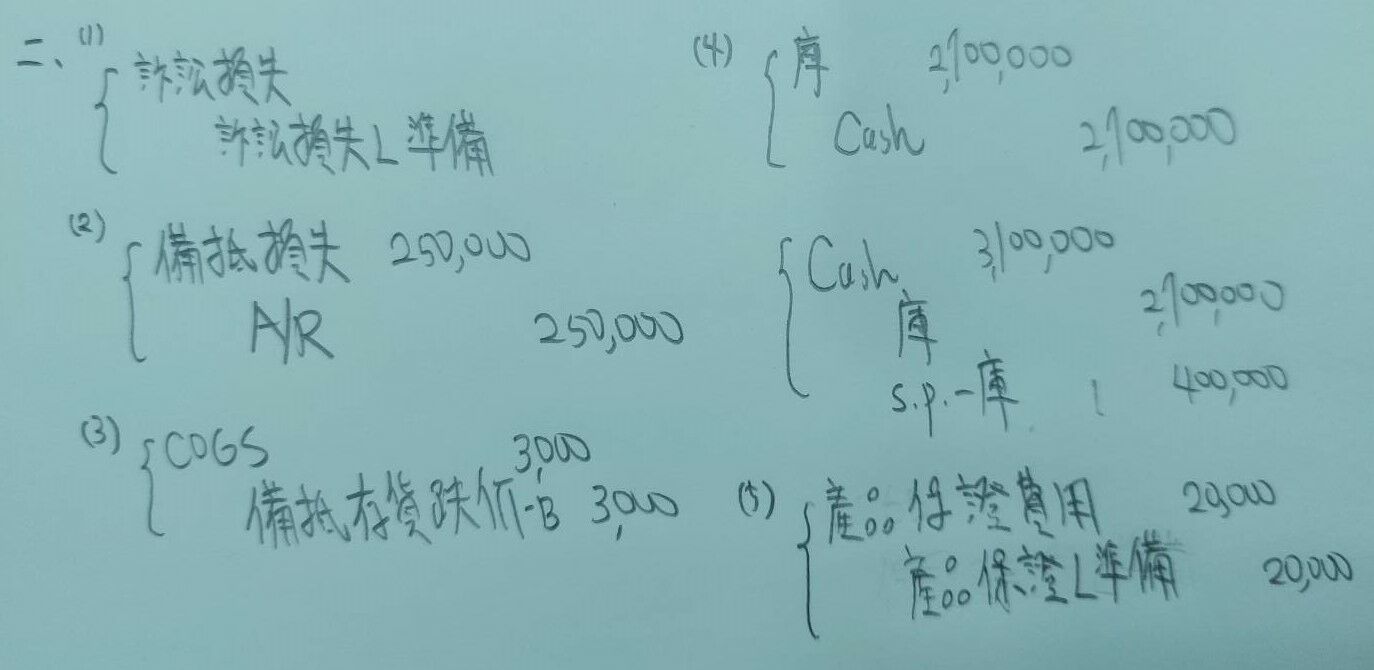 二、(1) 訴訟損失
訴訟損失L準備
(2) 備抵損失 250,000
A/R 250,000
(3) COGS 3,000
備抵存貨跌价-B 3,000
(4) 庫 2,700,000
Cash 2,700,000
Cash 3,100,000
庫 2,700,000
s.p.-庫 400,000
(5) 產品保證費用 20,000
產品保證L準備 20,000